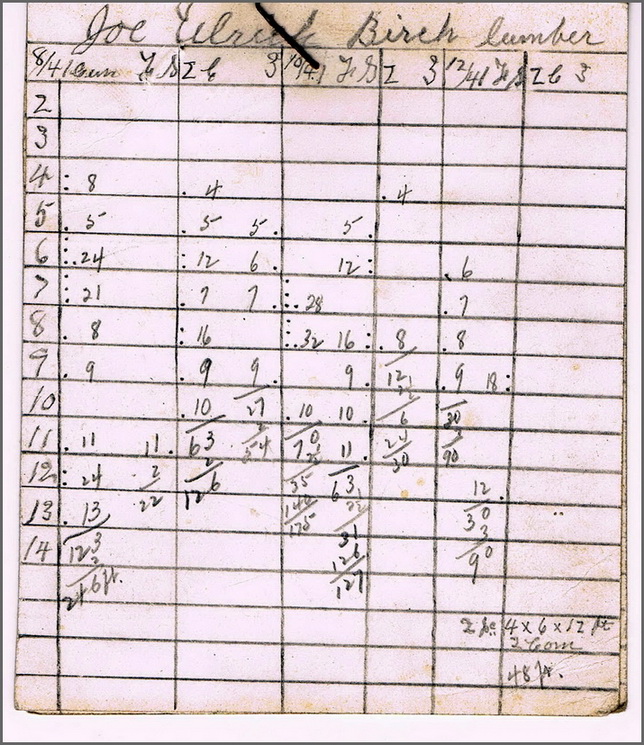 Joe Birch lumber
8/4 1 Com F S 2 C 3 10/4 1 F S 2 3 12/4 1 F S 2 C 3
2
3
4 : 8 . 4 . 4
5 . 5 . 5 5 . 5 .
6 24 : 12 6 . 12 : . 6
7 21 . 7 7 . 28 . 7
8 . 8 : 16 32 16 : . 8 . 8
9 . 9 . 9 9 . 9 . 12 . 9 18 :
10 . 10 27 . 10 10 . 6 30
11 . 11 11 . 63 2 54 70 11 . 24 30 3 90
12 : 24 2 22 2 126 35 63 12 .
13 . 13 140 175 30
14 123 2 246 ft. 31 126 127 3 90
2 pc 4 x 6 x 12 ft
2 Com
48 ft.